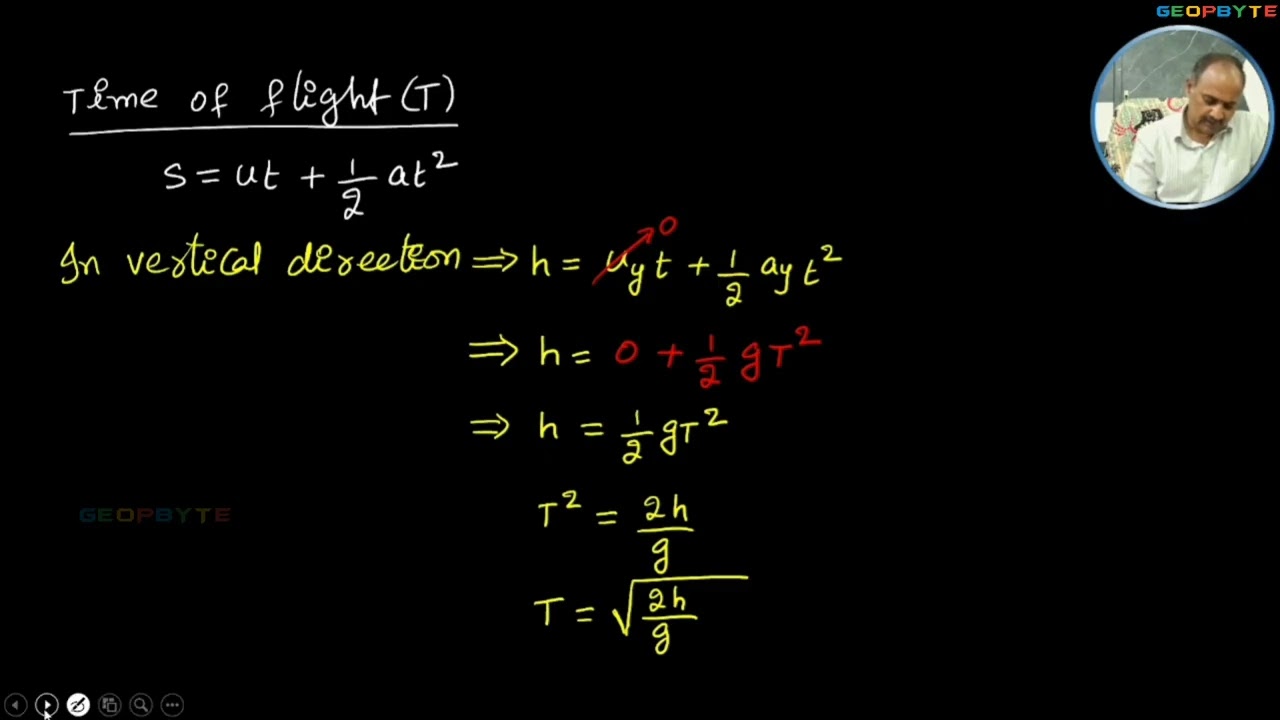 GEOPBYTE
Time of flight (T)
S = ut + 1/2 at²
In vertical direction ⇒ h = u_y t + 1/2 a_y t² 0
⇒ h = 0 + 1/2 gT²
⇒ h = 1/2 gT²
T² = 2h/g
GEOPBYTE
T = √(2h/g)